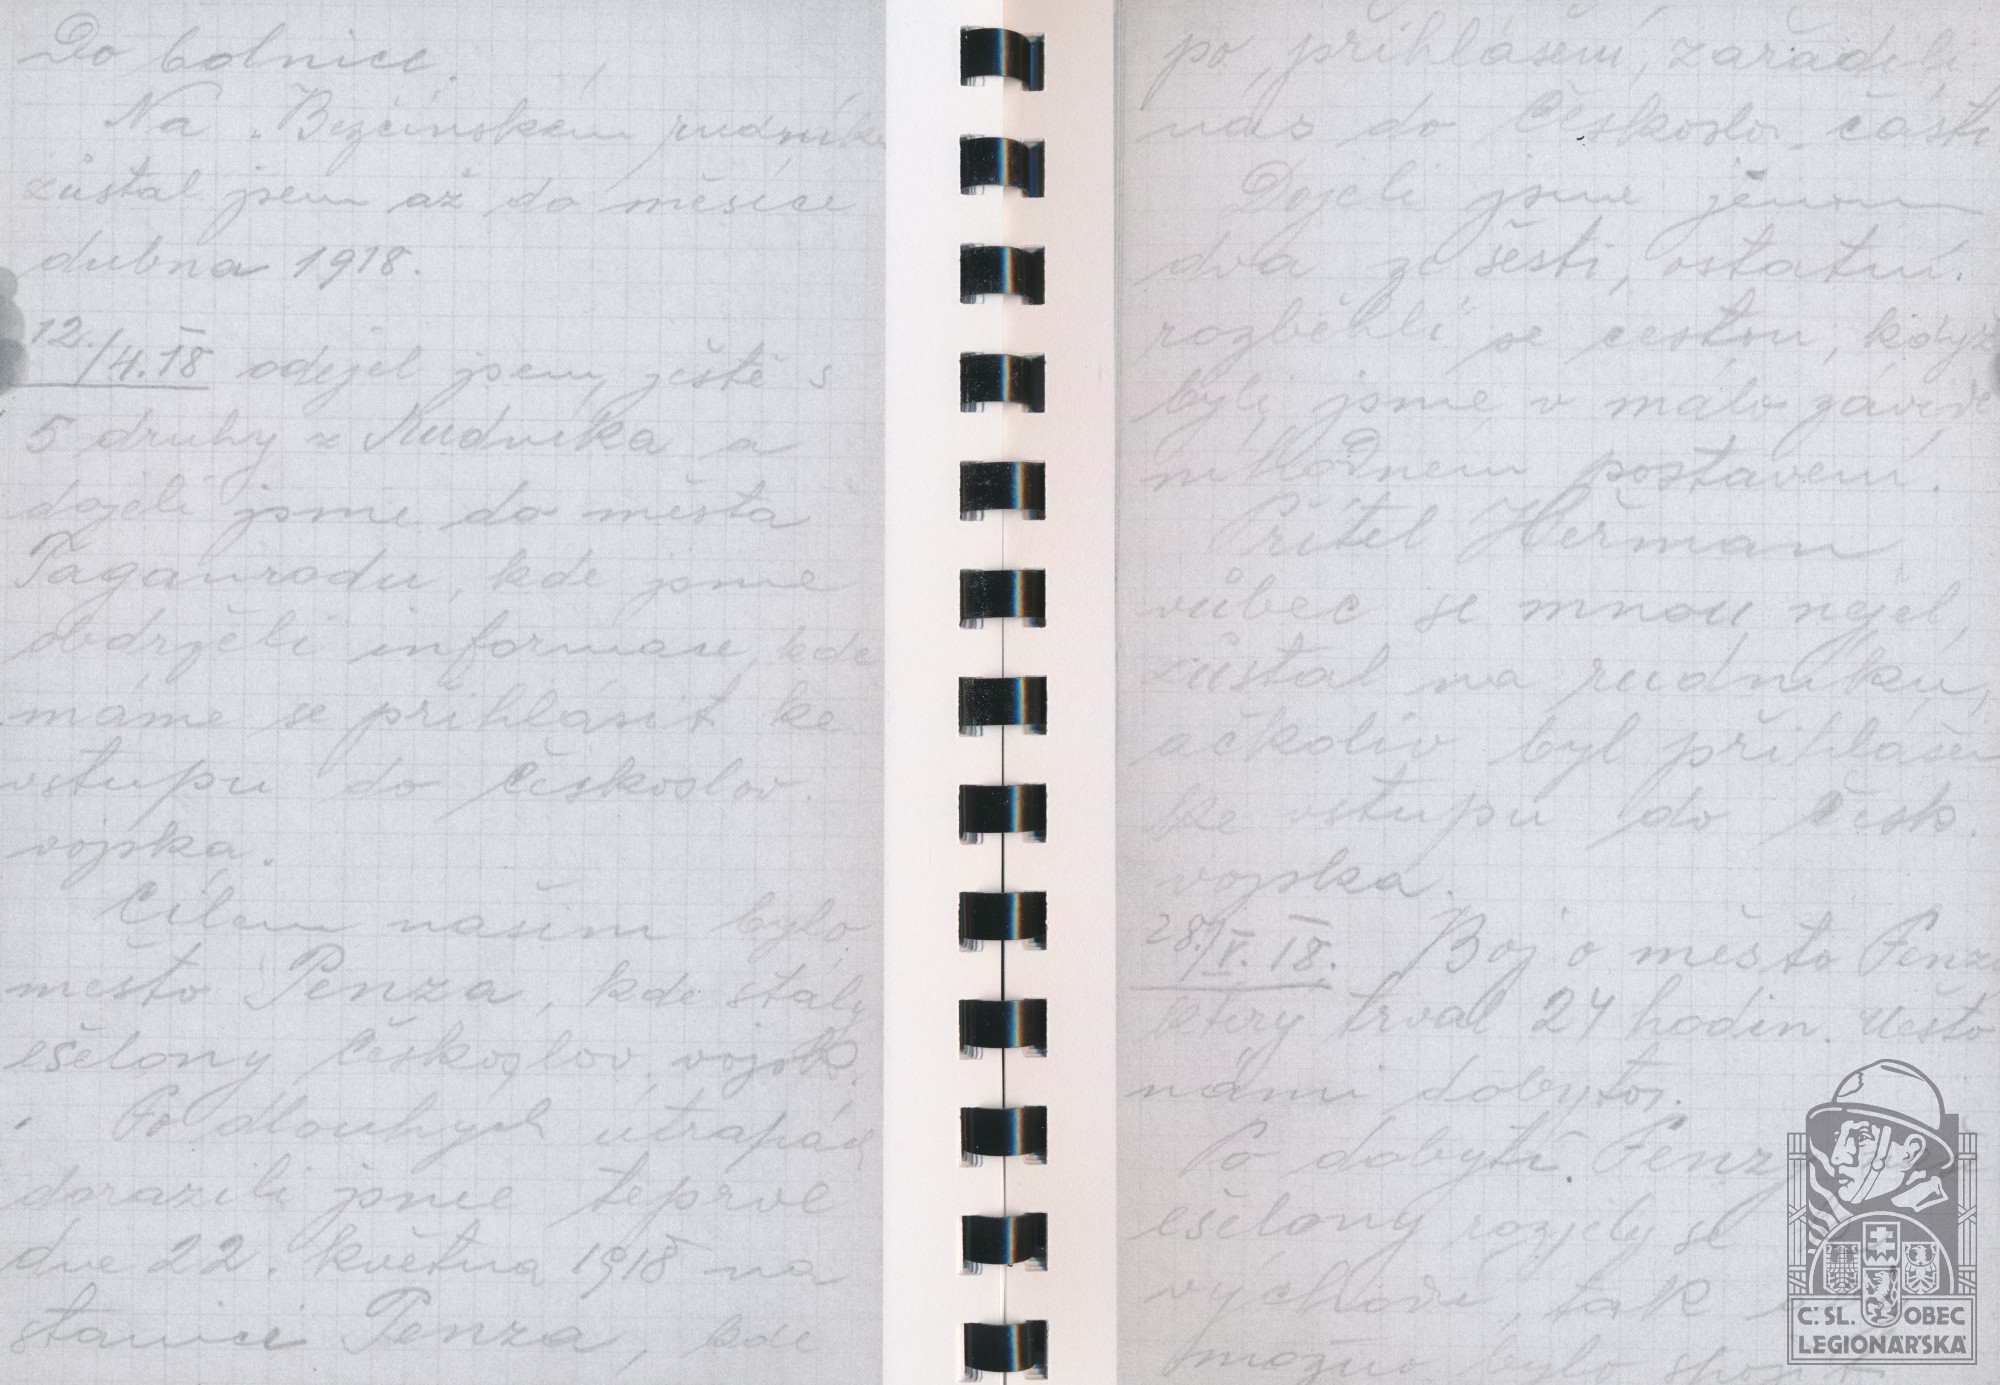 Do bolnice.
Na Bezčinském rudníku
zůstal jsem až do měsíce
dubna 1918.
12./4.18 odejel jsem ještě s
5 druhy z Rudníka a
dojeli jsme do města
Taganrodu, kde jsme
obdrželi informace, kde
máme se přihlásit ke
vstupu do Českoslov.
vojska.
Cílem naším bylo
město Penza, kde stály
ešelony Českoslov. vojsk.
Po dlouhých útrapách
dorazili jsme teprve
dne 22. května 1918 na
stanici Penza, kde
po přihlášení, zařadili
nás do Českoslov. části
Dojeli jsme jenom
dva ze šesti, ostatní
rozběhli se cestou, když
byli jsme v málo
postavení.
Přítel Heřman
vůbec se mnou nejel,
zůstal na rudníku,
ačkoliv byl přihlášen
ke vstupu do Česk.
vojska.
28./V. 18. Boj o město Penzu
který trval 24 hodin. Město
námi dobyto.
Po dobytí Penzy
ešelony rozjely se
východu, tak
možno bylo spojit
Č. SL. OBEC
LEGIONÁŘSKÁ